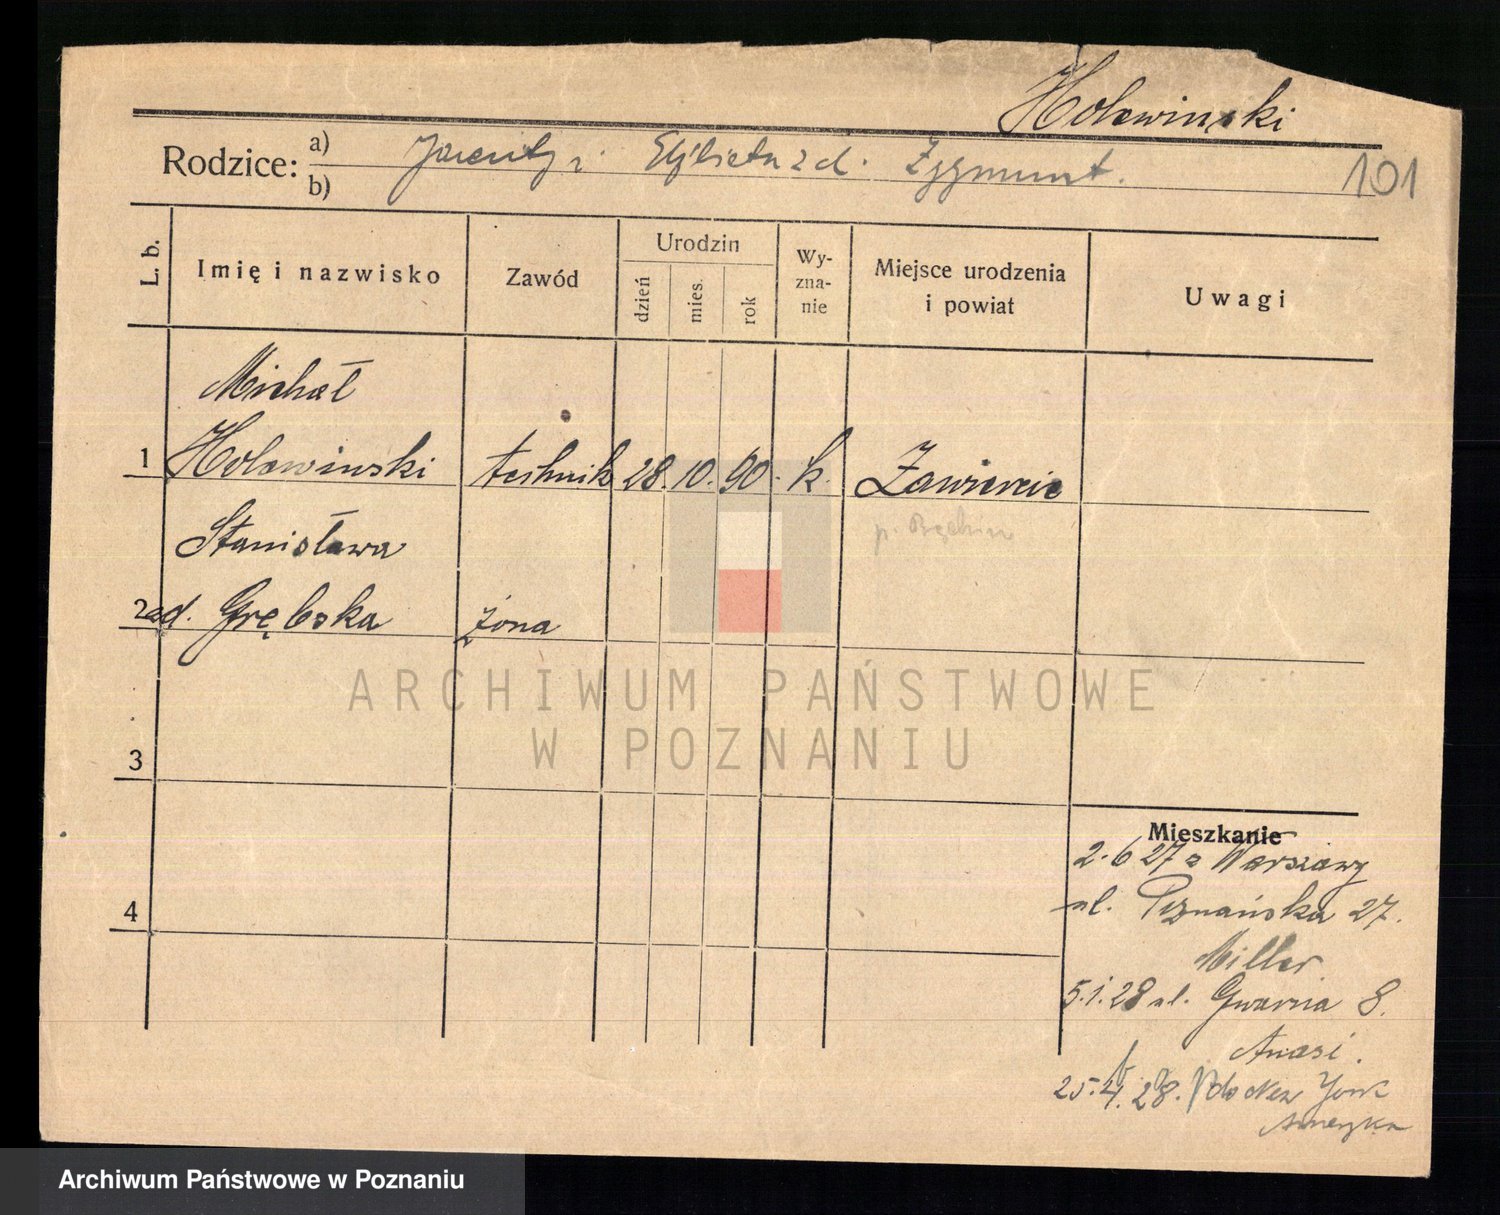 Holewinski
Rodzice: a) Elżbieta z d. Zygmunt.
b)
101
L. b.
Imię i nazwisko
Zawód
Urodzin
dzień
mies.
rok
Wy-
zna-
nie
Miejsce urodzenia
i powiat
Uwagi
Michał
1 Holewinski technik 28. 10. 90. k. Zawiercie
p. Będzin
Stanisława
2 zd. Grębska żona
3
4
Mieszkanie
2.6 27 z Warszawy
ul. Poznańska 27.
Miller
5.1.28 ul. Gwarna 8.
25.4.28. do New York
Ameryka
ARCHIWUM PAŃSTWOWE
W POZNANIU
Archiwum Państwowe w Poznaniu